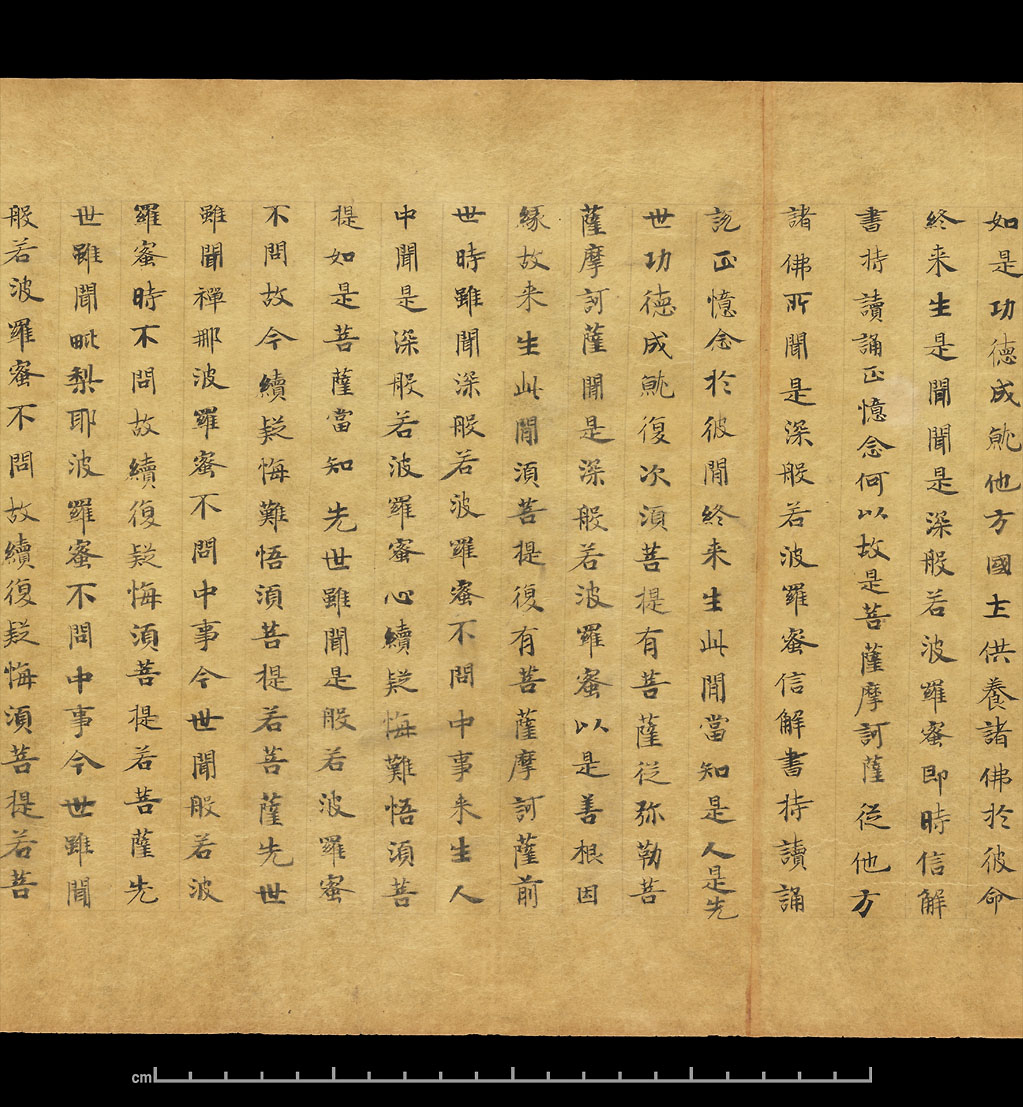 如是功德成就他方國土供養諸佛於彼命
終来生是間聞是深般若波羅蜜即時信解
書持讀誦正憶念何以故是菩薩摩訶薩從他方
諸佛所聞是深般若波羅蜜信解書持讀誦
說正憶念於彼間終来生此間當知是人是先
世功德成就復次湏菩提有菩薩從弥勒菩
薩摩訶薩聞是深般若波羅蜜以是善根因
緣故来生此間湏菩提復有菩薩摩訶薩前
世時雖聞深般若波羅蜜不問中事来生人
中聞是深般若波羅蜜心續疑悔難悟湏菩
提如是菩薩當知先世雖聞是般若波羅蜜
不問故今續疑悔難悟湏菩提若菩薩先世
雖聞禪那波羅蜜不問中事今世聞般若波
羅蜜時不問故續復疑悔湏菩提若菩薩先
世雖聞毗梨耶波羅蜜不問中事今世雖聞
般若波羅蜜不問故續復疑悔湏菩提若菩
cm